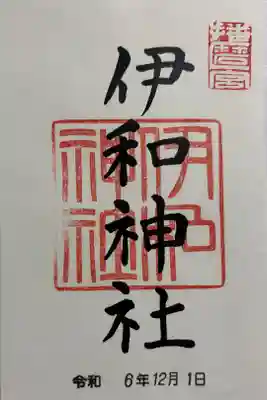 播磨宮
伊和神社
伊和
神社
令和 6年12月1日